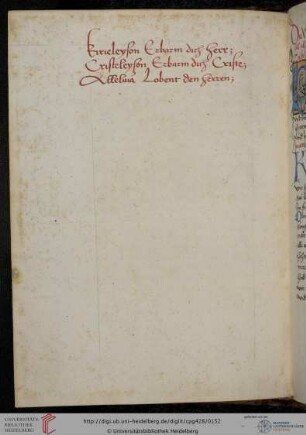 Kirieleyson Erbarm dich herr;
Cristeleyson Erbarm dich Criste;
Alleluia Lobent den herren;
UNIVERSITÄTS-
BIBLIOTHEK
HEIDELBERG
http://digi.ub.uni-heidelberg.de/diglit/cpg428/0152
© Universitätsbibliothek Heidelberg